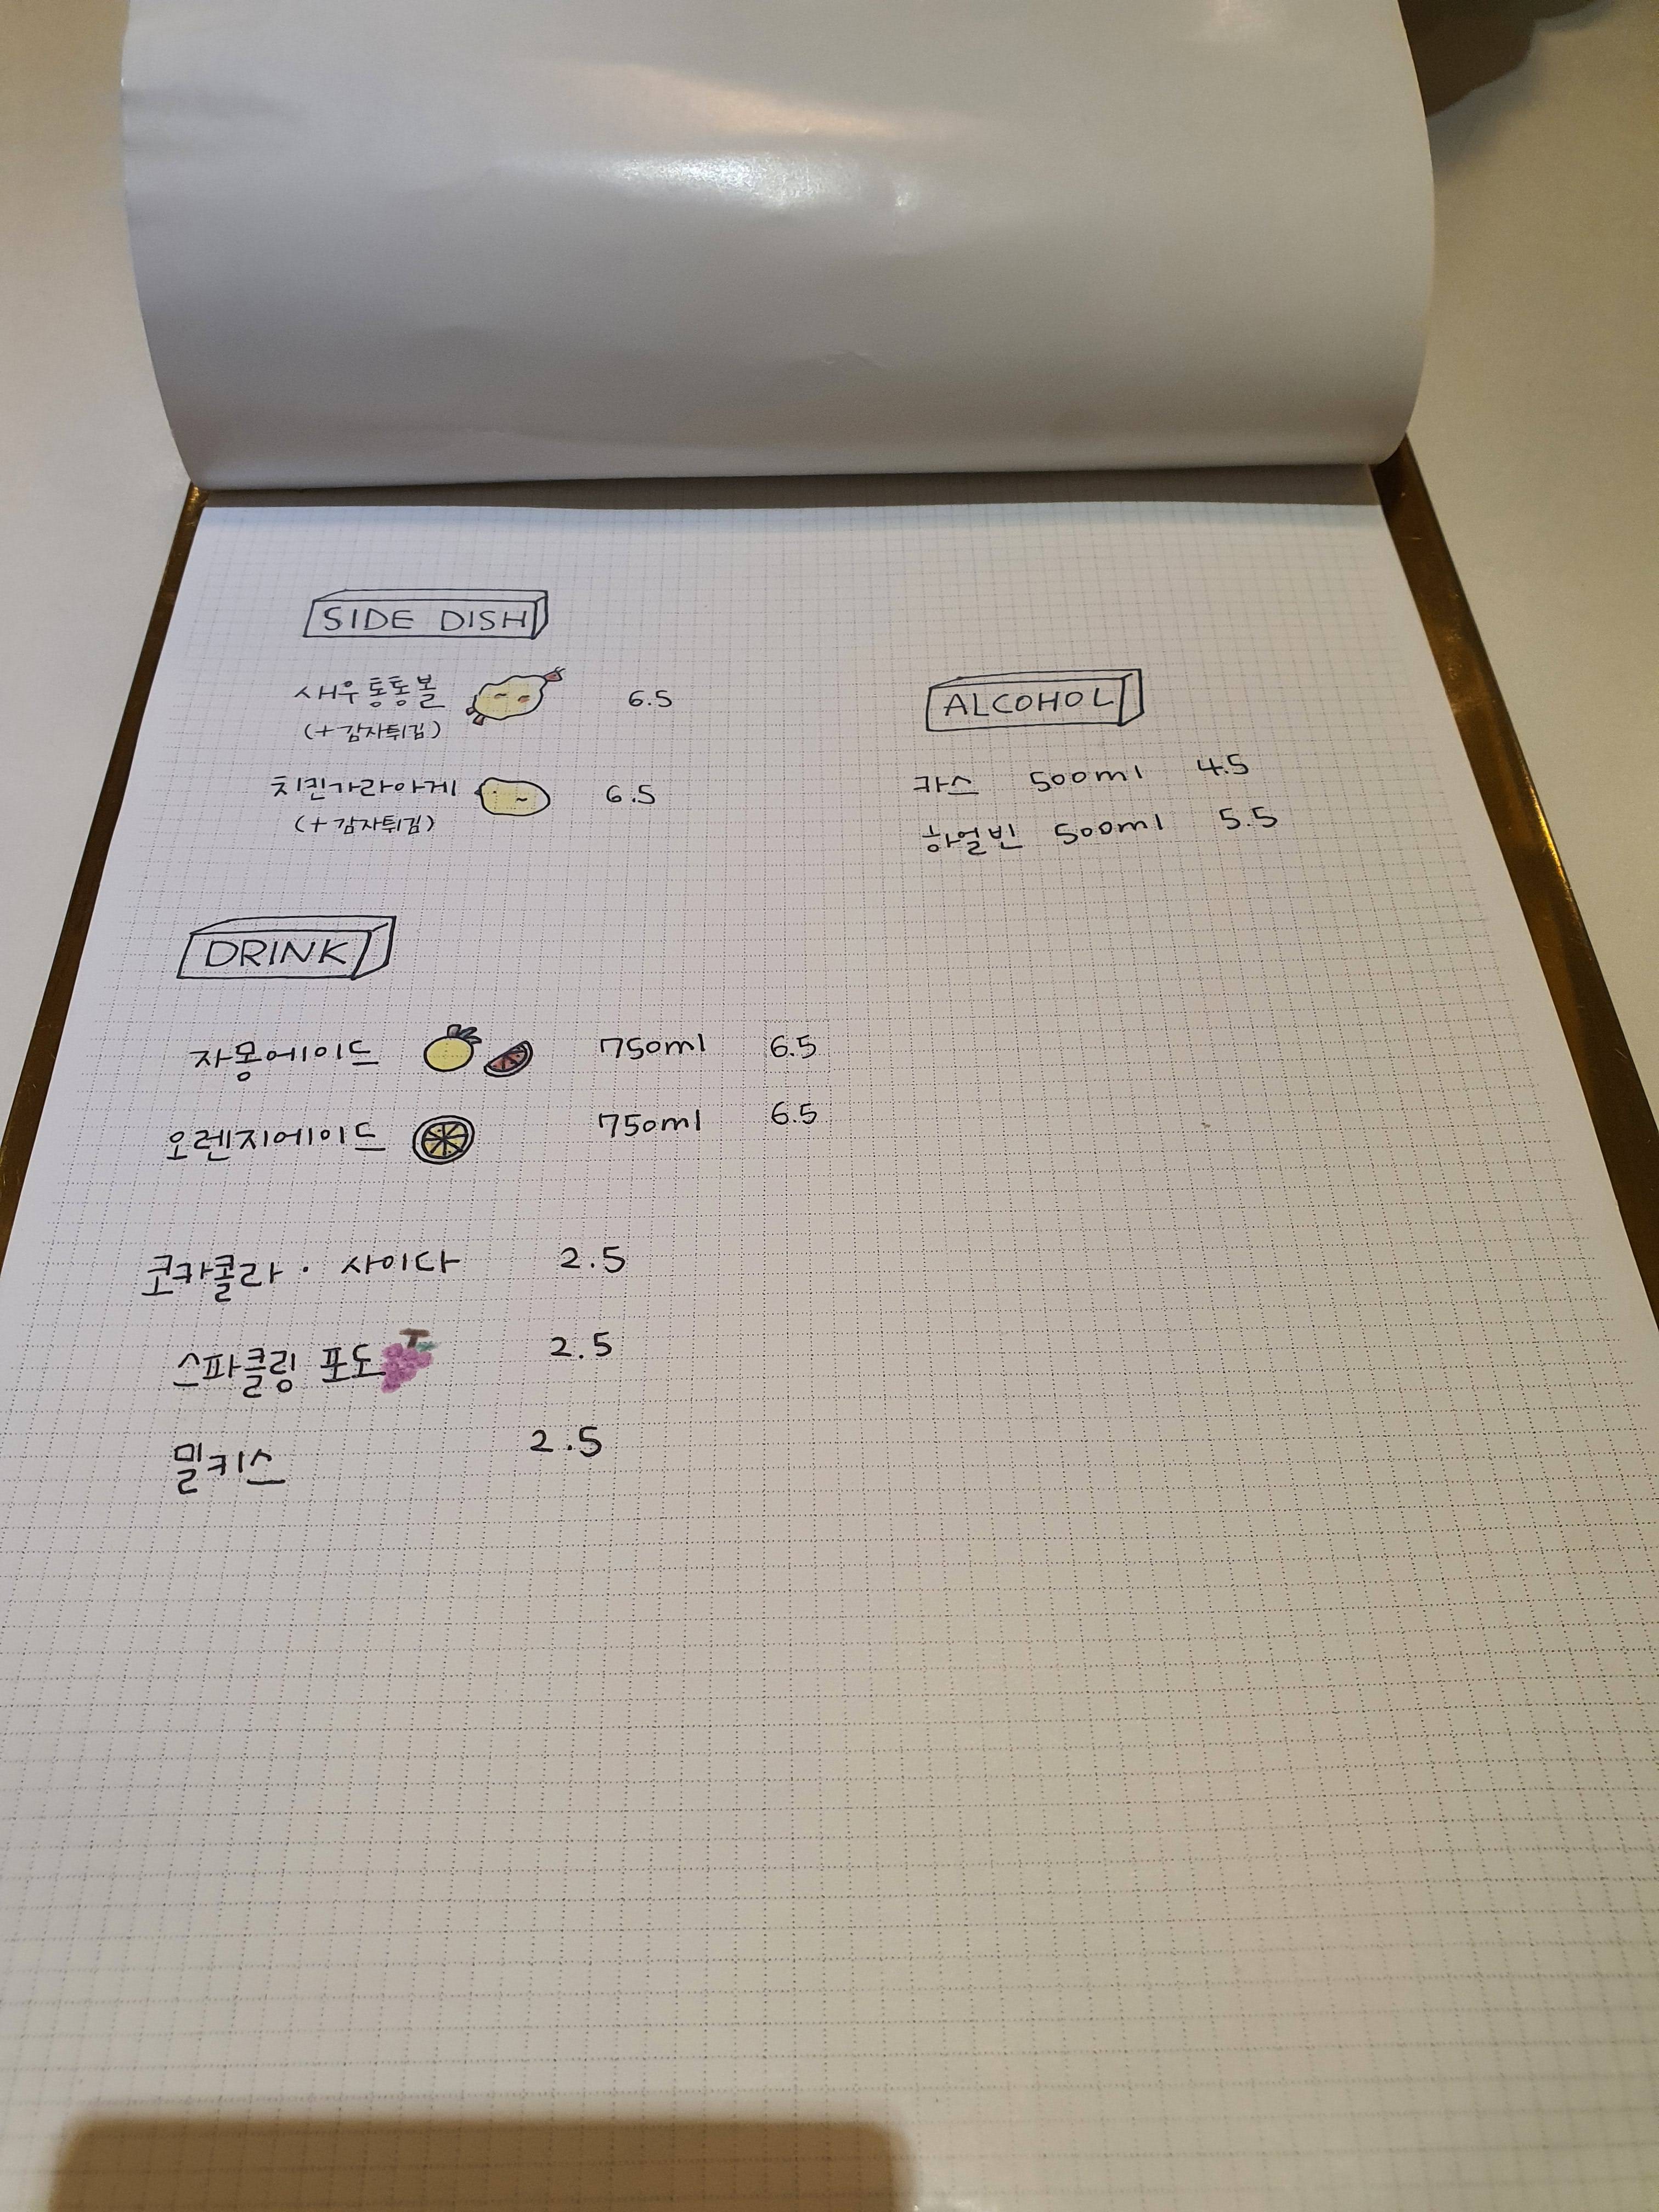 SIDE DISH
새우통통볼 6.5
(+감자튀김)
치킨가라아게 6.5
(+감자튀김)
ALCOHOL
카스 500ml 4.5
하얼빈 500ml 5.5
DRINK
자몽에이드 750ml 6.5
오렌지에이드 750ml 6.5
코카콜라 · 사이다 2.5
스파클링 포도 2.5
밀키스 2.5